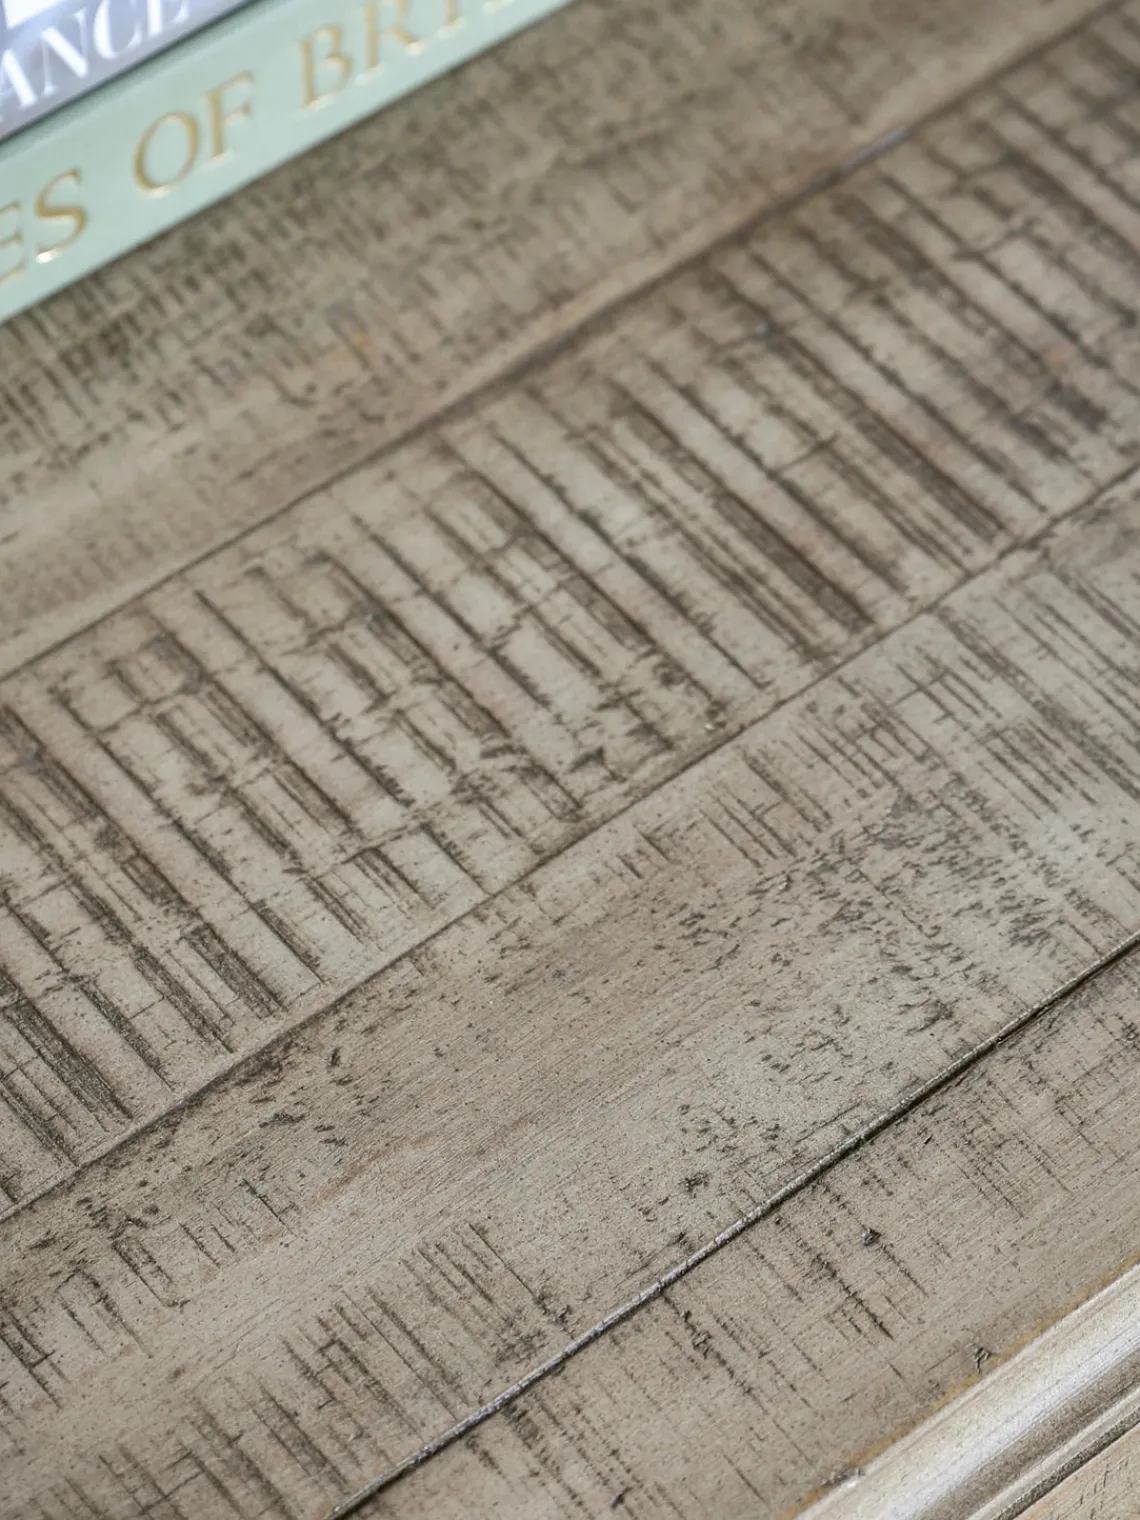 ANCE
ES OF BRIT